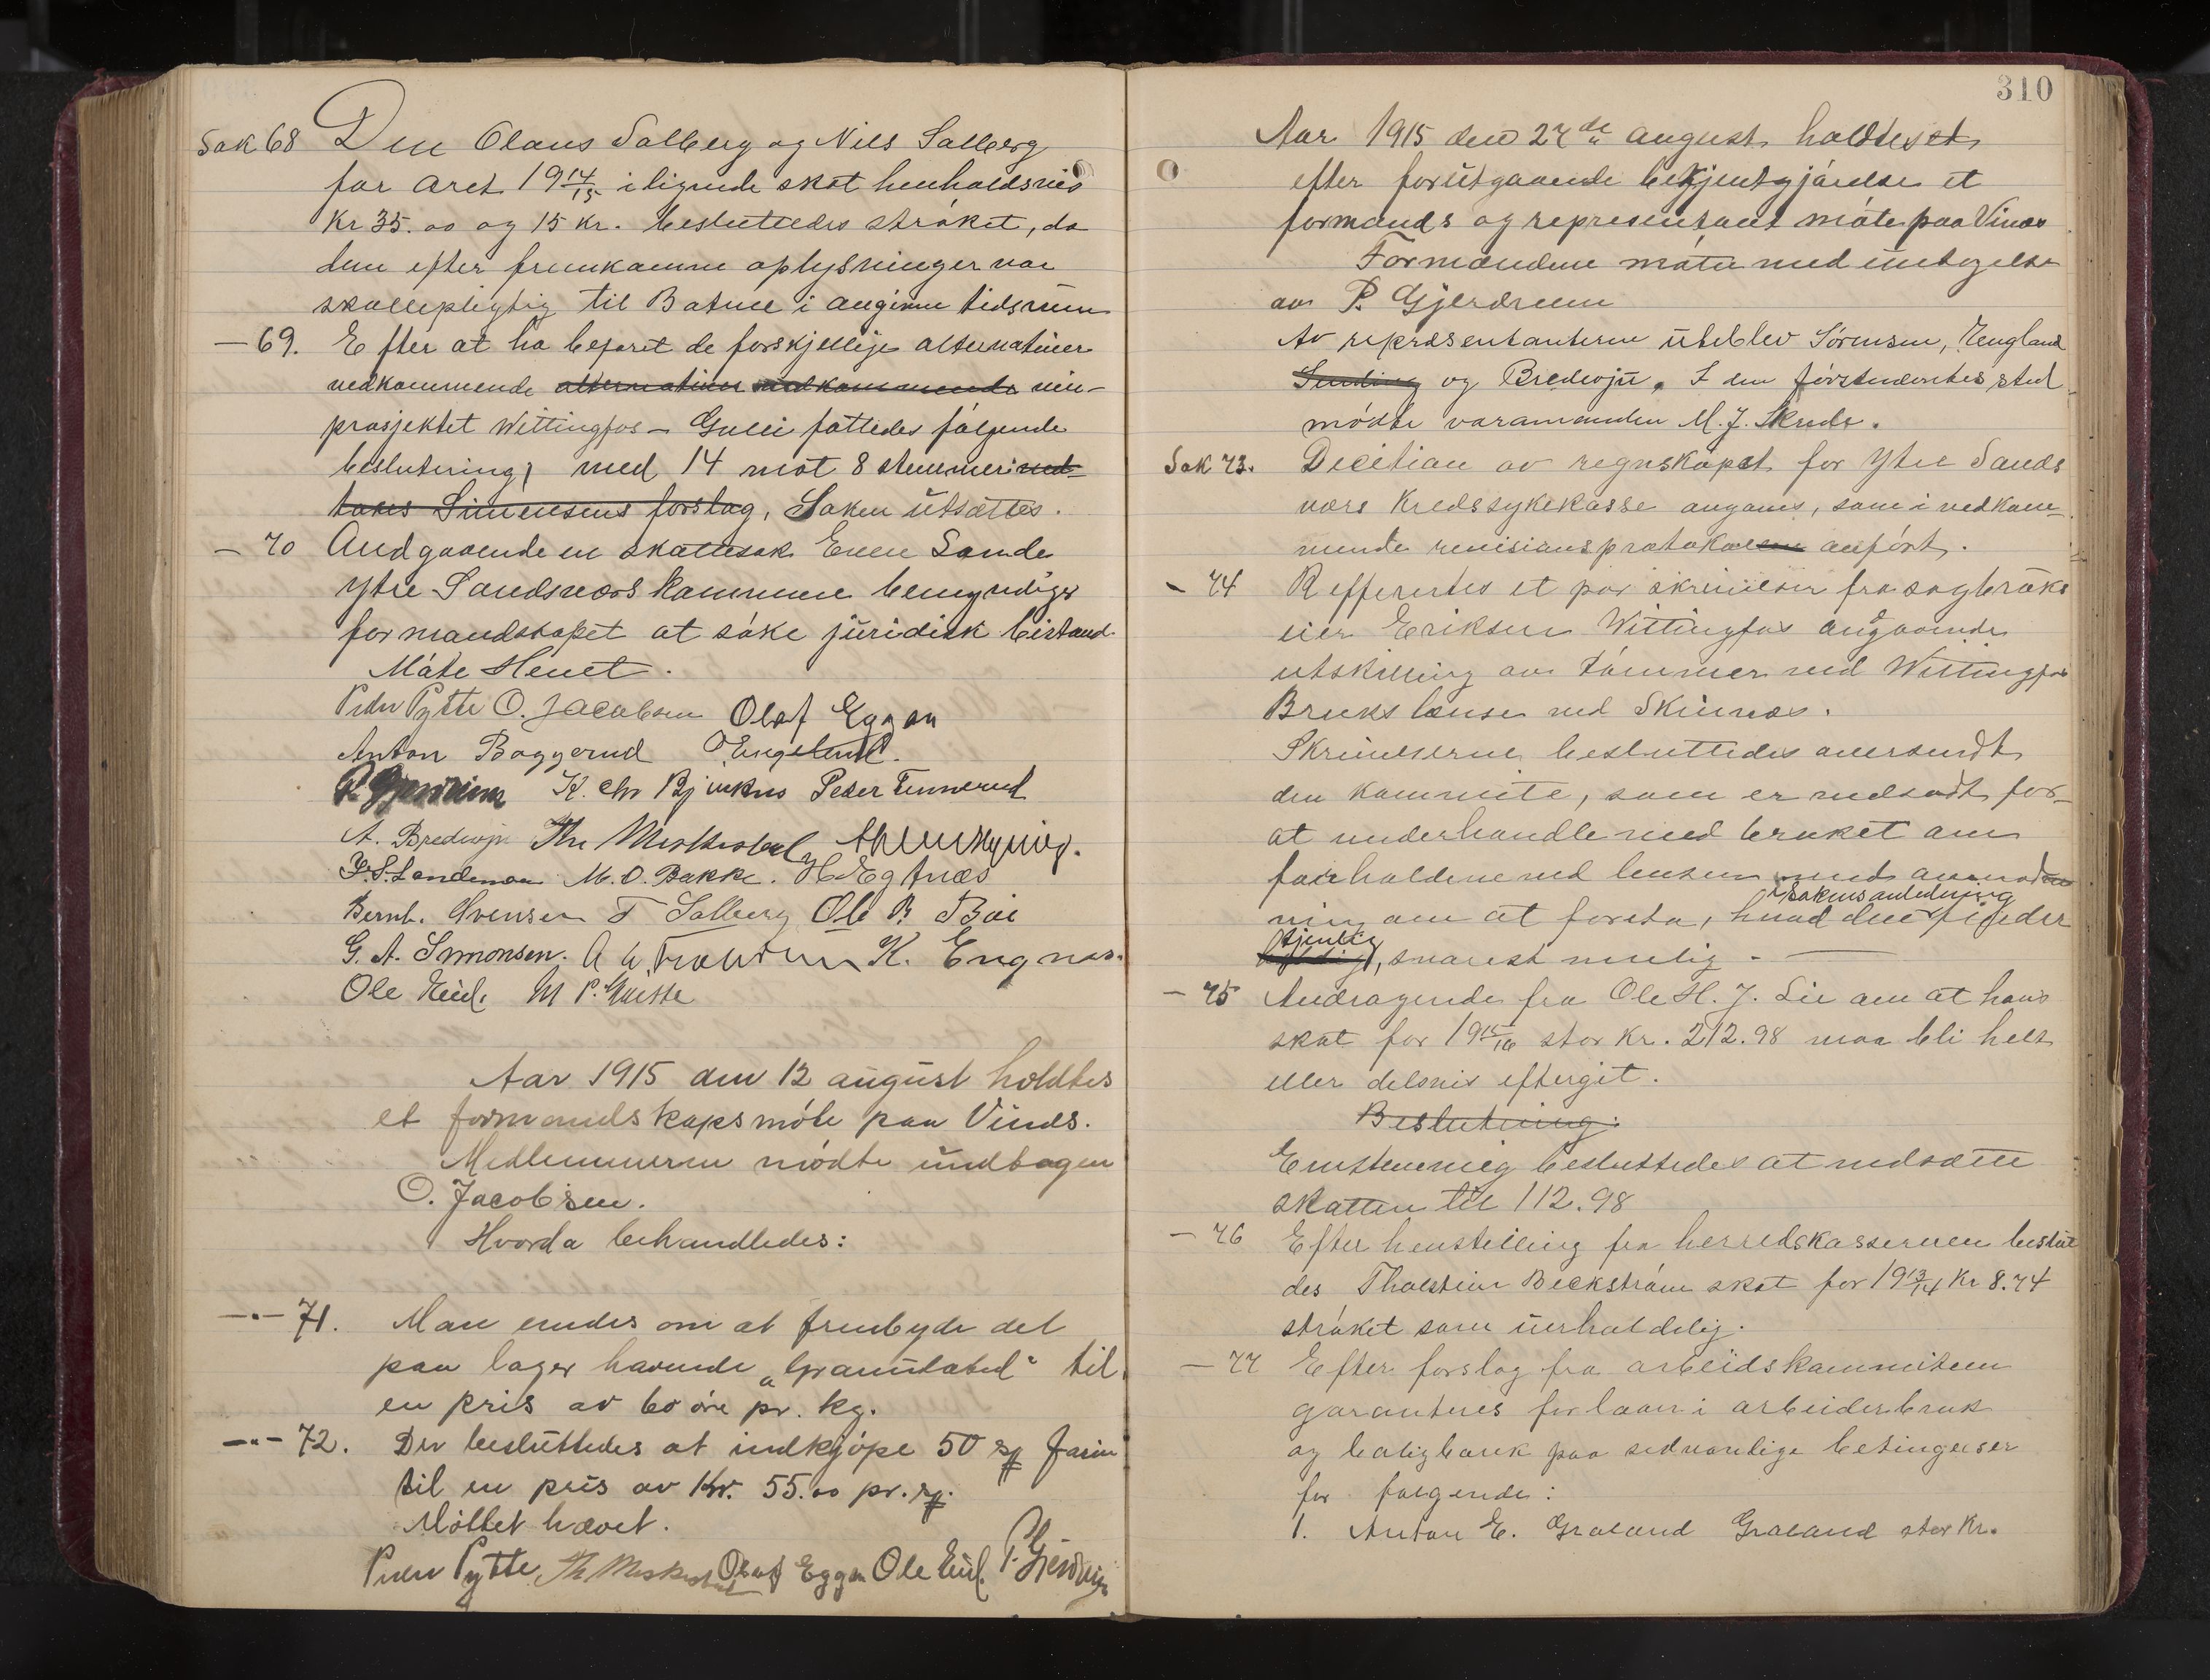 Sak 68 Den Olaus Solberg og Nils Solberg
for året 19 14/15 ilignede skat henholdsvis
Kr 35.00 og 15 kr. besluttedes strøket, da
den efter fremkomne oplysninger var
skattepligtig til Botne i angivne tidsrum
— 69. Efter at ha befaret de forskjellige alternativer
vedkommende alternativer vedkommende vei-
prosjektet Wittingfos – Gulli fattedes følgende
beslutning; med 14 mot 8 stemmer ved-
toges Simensens forslag, Saken utsættes.
— 70 Andgaaende en skattesak Even Sande
Ytre Sandsvær kommune bemyndiges
formandskapet at søke juridisk bistand.
Møte Hevet.
Peder Pytte O. Jacobsen Olaf Eggen
Anton Boggerud O Engelund.
P. Gjerdrum K. Chr Bjerknes Peder Tennerud
A. Bredvoje Th Meskestad
M. O. Bakke. H Egtnæs
Bernh. Svensen T Solberg Ole B. Bøe
G. A. Simonsen. K. Engnæs.
Ole Eiud. M P. Guette
Aar 1915 den 12 august holdtes
et formandskapsmøte paa Vinds.
Medlemmerne mødte undtagen
O. Jacobsen.
Hvorda behandledes:
—"— 71. Man enedes om at frembyde det
paa lager havende „Granulated“ til
en pris av 60 øre pr. kg.
—"— 72. Der besluttedes at indkjøpe 50 sk farin
til en pris av Kr. 55.00 pr. sk.
Møttet hævet.
Peder Pytte Th Meskestad Olaf Eggen Ole Eiud. P. Gjerdrum
310
Aar 1915 den 27de august holdtes et
efter forutgaaende bekjentgjørelse et
formands og representant møte paa Vinæs
Formændene møtte med undtagelse
av P. Gjerdrum
Av repræsentanterne uteblev Sørensen, Engelund
Sending og Bredvoje. I den førstnævntes sted
mødte varamanden M. J. Skrede.
Sak 73. Decition av regnskapet for Ytre Sands
værs Kredssykekasse avgaves, som i vedkom-
mende revisionsprotokollen anført.
— 74 Refferertes et par skrivelser fra sagbruks
eier Eriksen Wittingfos angaaende
utskilling av tømmer ved Wittingfos
Bruks lænse ved Skinnes.
Skrivelserne besluttedes oversendt
den kommite, som er nedsadt for
at underhandle med bruket om
forholdene ved lensen med anmod
ning om at foreta, hvad den i sakens anledning finder
tjenlig, snarest mulig. —
— 75 Andragende fra Ole H. J. Lie om at hans
skat for 19 15/16 stor Kr. 212.98 maa bli helt
eller delsvis eftergit.
Beslutning:
Enstemmig besluttedes at nedsætte
skatten til 112.98
— 76 Efter henstilling fra herredskassereren beslut
des Tholstein Beckstrøm skat for 19 13/14 Kr 8.74
strøket som uerholdelig.
— 77 Efter forslag fra arbeidskommiteen
garanteres for laan i arbeiderbruk
og boligbank paa sedvanlige betingelser
for følgende:
1. Anton E. Graland Graland stor Kr.